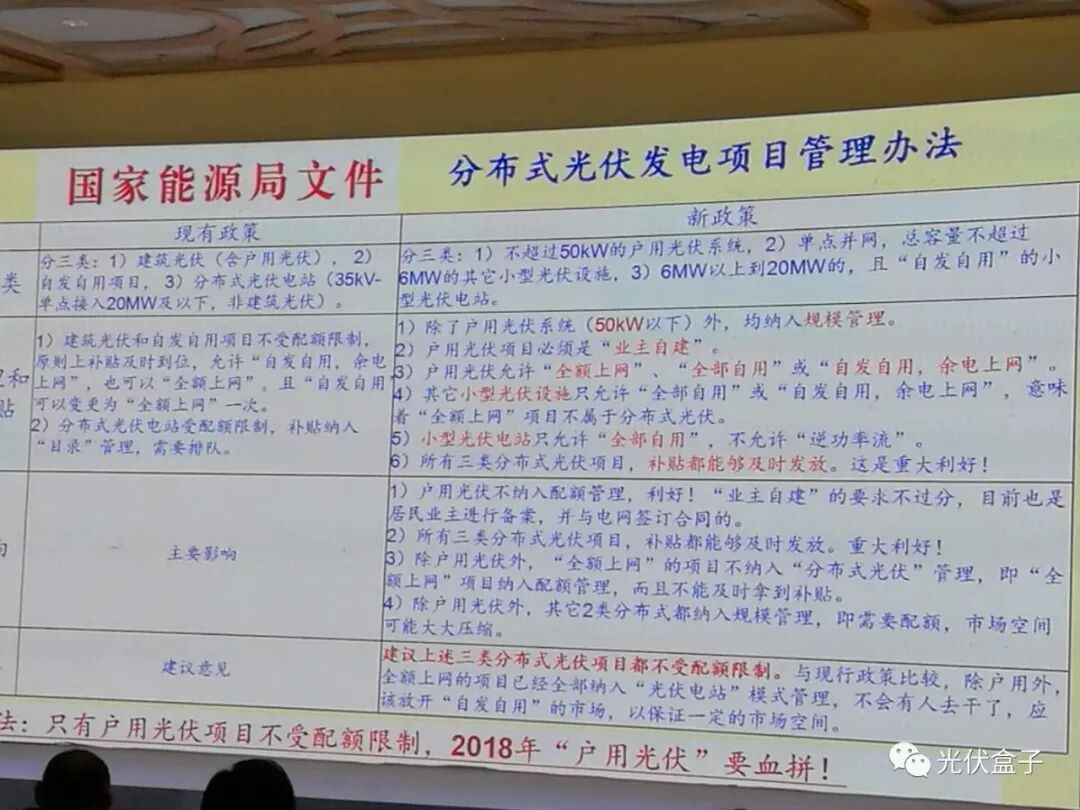 国家能源局文件
分布式光伏发电项目管理办法
现有政策
新政策
类
分三类：1）建筑光伏（含户用光伏），2）
自发自用项目，3）分布式光伏电站（35kV-
单点接入20MW及以下，非建筑光伏）。
分三类：1）不超过50kW的户用光伏系统，2）单点并网，总容量不超过
6MW的其它小型光伏设施，3）6MW以上到20MW的，且“自发自用”的小
型光伏电站。
和
贴
1）建筑光伏和自发自用项目不受配额限制，
原则上补贴及时到位，允许“自发自用，余电
上网”，也可以“全额上网”。且“自发自用
可以变更为“全额上网”一次。
2）分布式光伏电站受配额限制，补贴纳入
“目录”管理，需要排队。
1）除了户用光伏系统（50kW以下）外，均纳入规模管理。
2）户用光伏项目必须是“业主自建”。
3）户用光伏允许“全额上网”、“全部自用”或“自发自用，余电上网”。
4）其它小型光伏设施只允许“全部自用”或“自发自用，余电上网”，意味
着“全额上网”项目不属于分布式光伏。
5）小型光伏电站只允许“全部自用”，不允许“逆功率流”。
6）所有三类分布式光伏项目，补贴都能够及时发放。这是重大利好！
向
主要影响
1）户用光伏不纳入配额管理，利好！“业主自建”的要求不过分，目前也是
居民业主进行备案，并与电网签订合同的。
2）所有三类分布式光伏项目，补贴都能够及时发放。重大利好！
3）除户用光伏外，“全额上网”的项目不纳入“分布式光伏”管理，即“全
额上网”项目纳入配额管理，而且不能及时拿到补贴。
4）除户用光伏外，其它2类分布式都纳入规模管理，即需要配额，市场空间
可能大大压缩。
建议意见
建议上述三类分布式光伏项目都不受配额限制。与现行政策比较，除户用外，
全额上网的项目已经全部纳入“光伏电站”模式管理，不会有人去干了，应
该放开“自发自用”的市场，以保证一定的市场空间。
法：只有户用光伏项目不受配额限制，2018年“户用光伏”要血拼！
光伏盒子